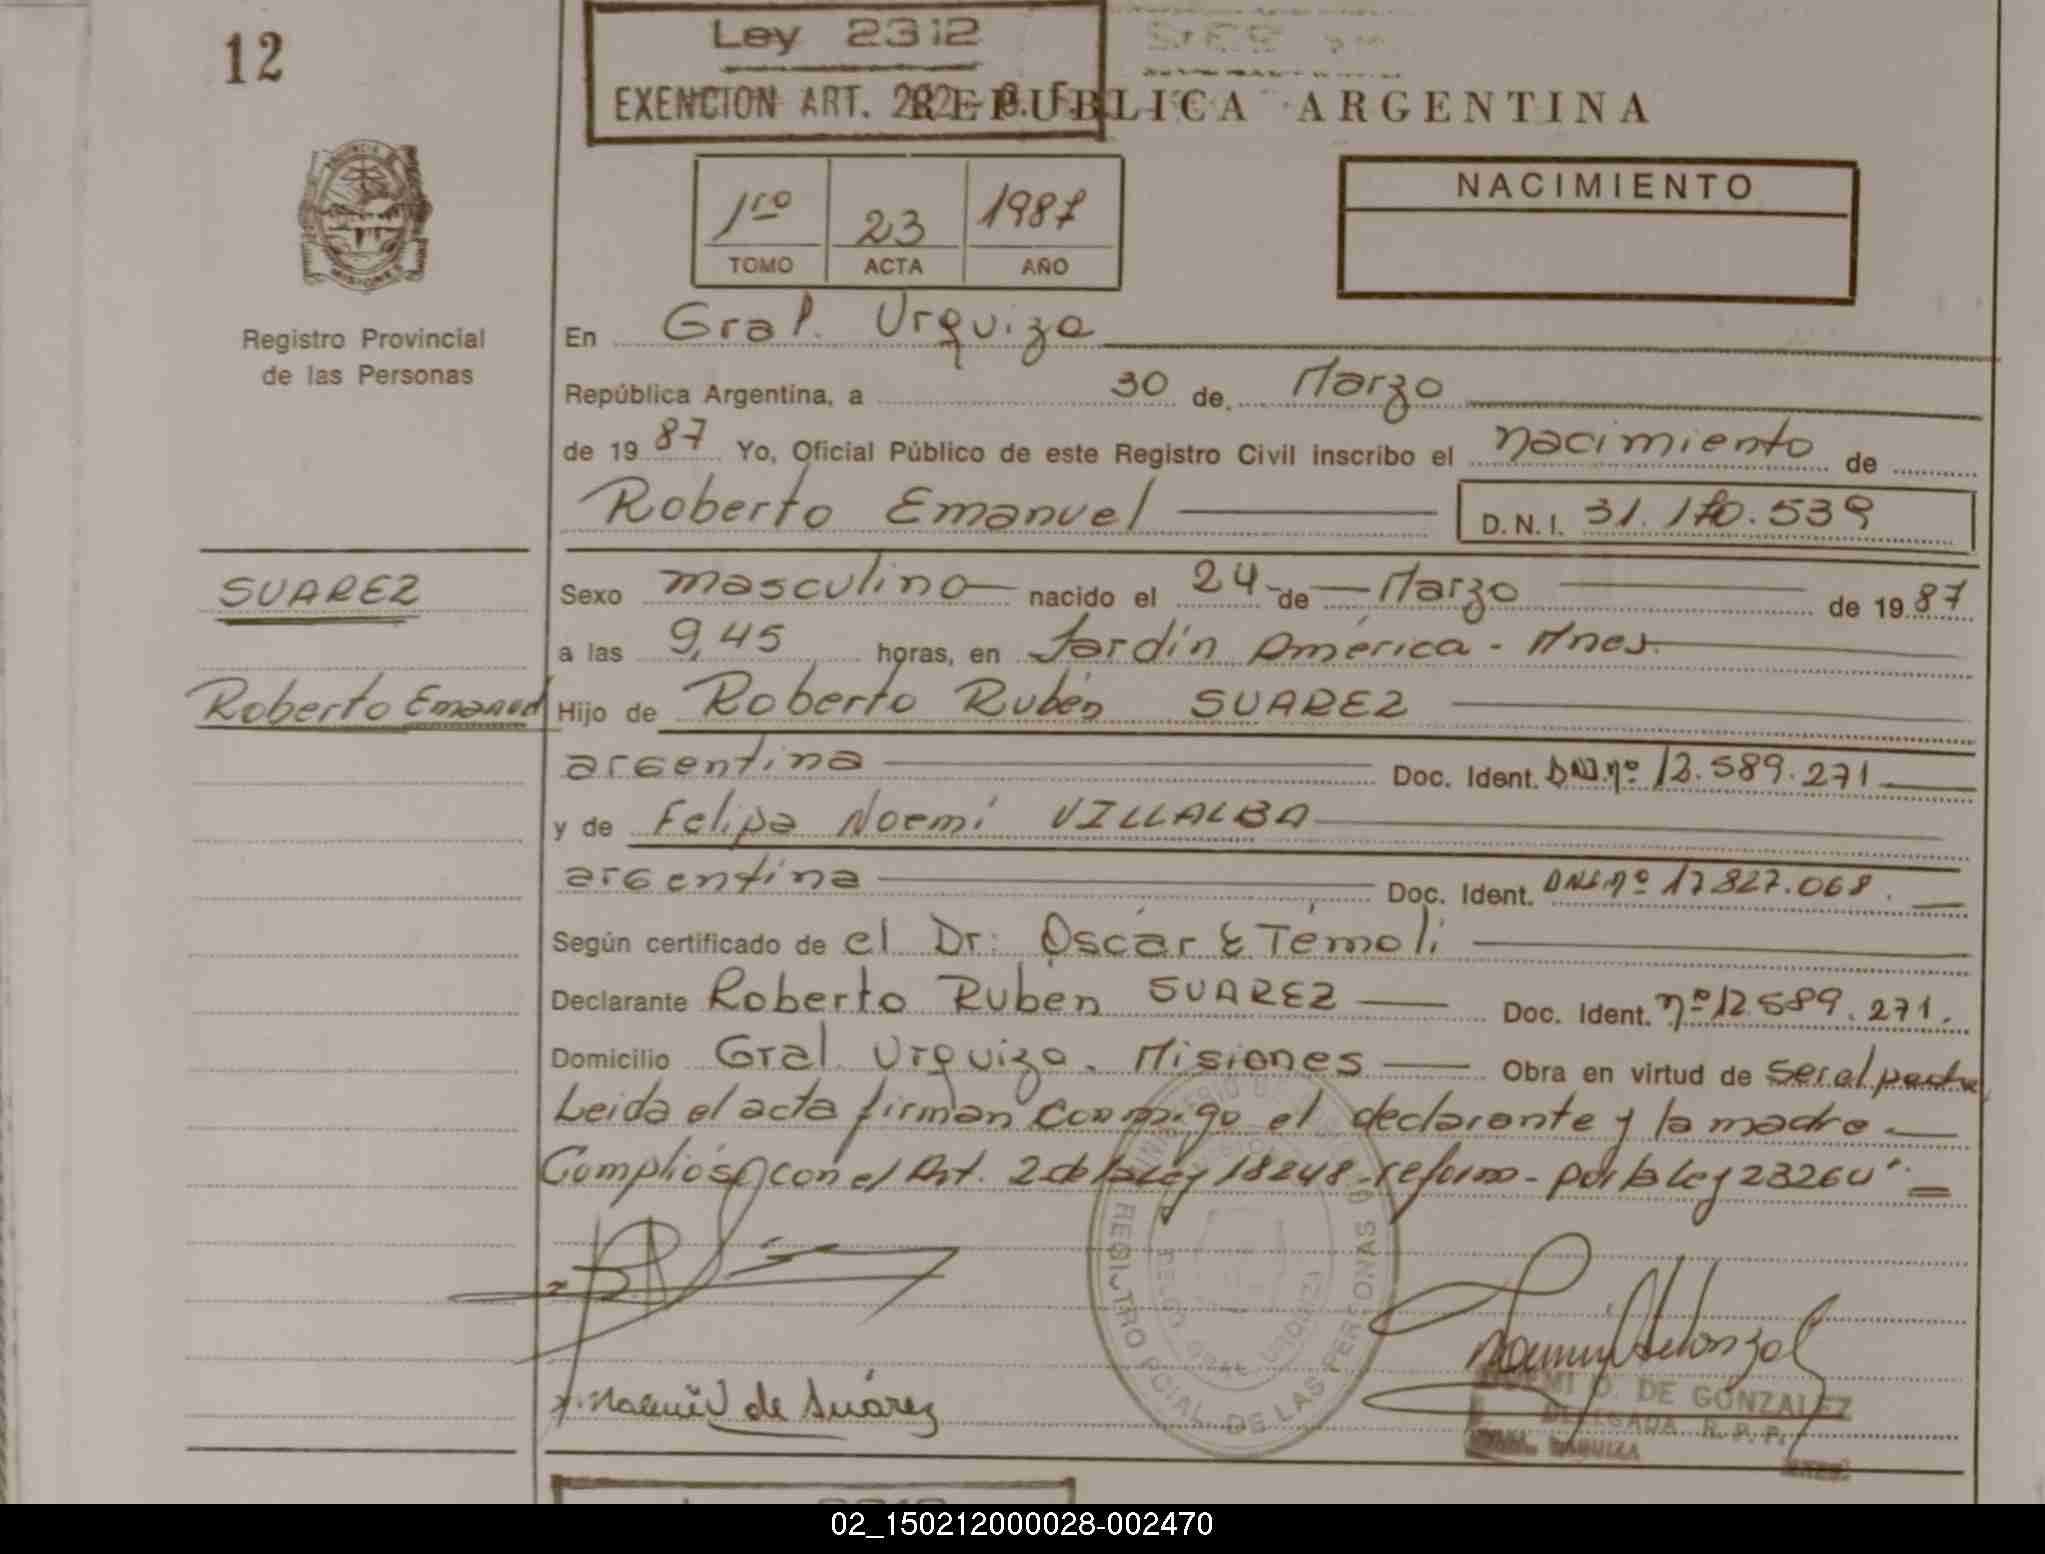 12
Ley 2312
EXENCION ART.
REPUBLICA ARGENTINA
1ro 23 1987
TOMO ACTA AÑO
NACIMIENTO
Registro Provincial
de las Personas
En Gral. Urquiza
República Argentina, a 30 de Marzo
de 1987 Yo, Oficial Público de este Registro Civil inscribo el nacimiento de
Roberto Emanuel D.N.I. 31.170.539
SUAREZ
Roberto Emanuel
Sexo masculino nacido el 24 de Marzo de 1987
a las 9,45 horas, en Jardín América - Mnes.
Hijo de Roberto Rubén SUAREZ
argentina Doc. Ident. DNI nº 12.589.271
y de Felipa Noemí VILLALBA
argentina Doc. Ident. DNI nº 17827.068.
Según certificado de el Dr: Oscar E Témoli
Declarante Roberto Rubén SUAREZ Doc. Ident. nº 12.589.271.
Domicilio Gral. Urquiza. Misiones Obra en virtud de ser el padre
Leida el acta firman conmigo el declarante y la madre
Cumpliόse con el Art. 2 de la Ley 18248 - reform - por la Ley 23264
REGISTRO PCIAL. DE LAS PERSONAS
de Suárez
NOEMI D. DE GONZALEZ
DELEGADA R.P.P.
GRAL. URQUIZA
02_150212000028-002470